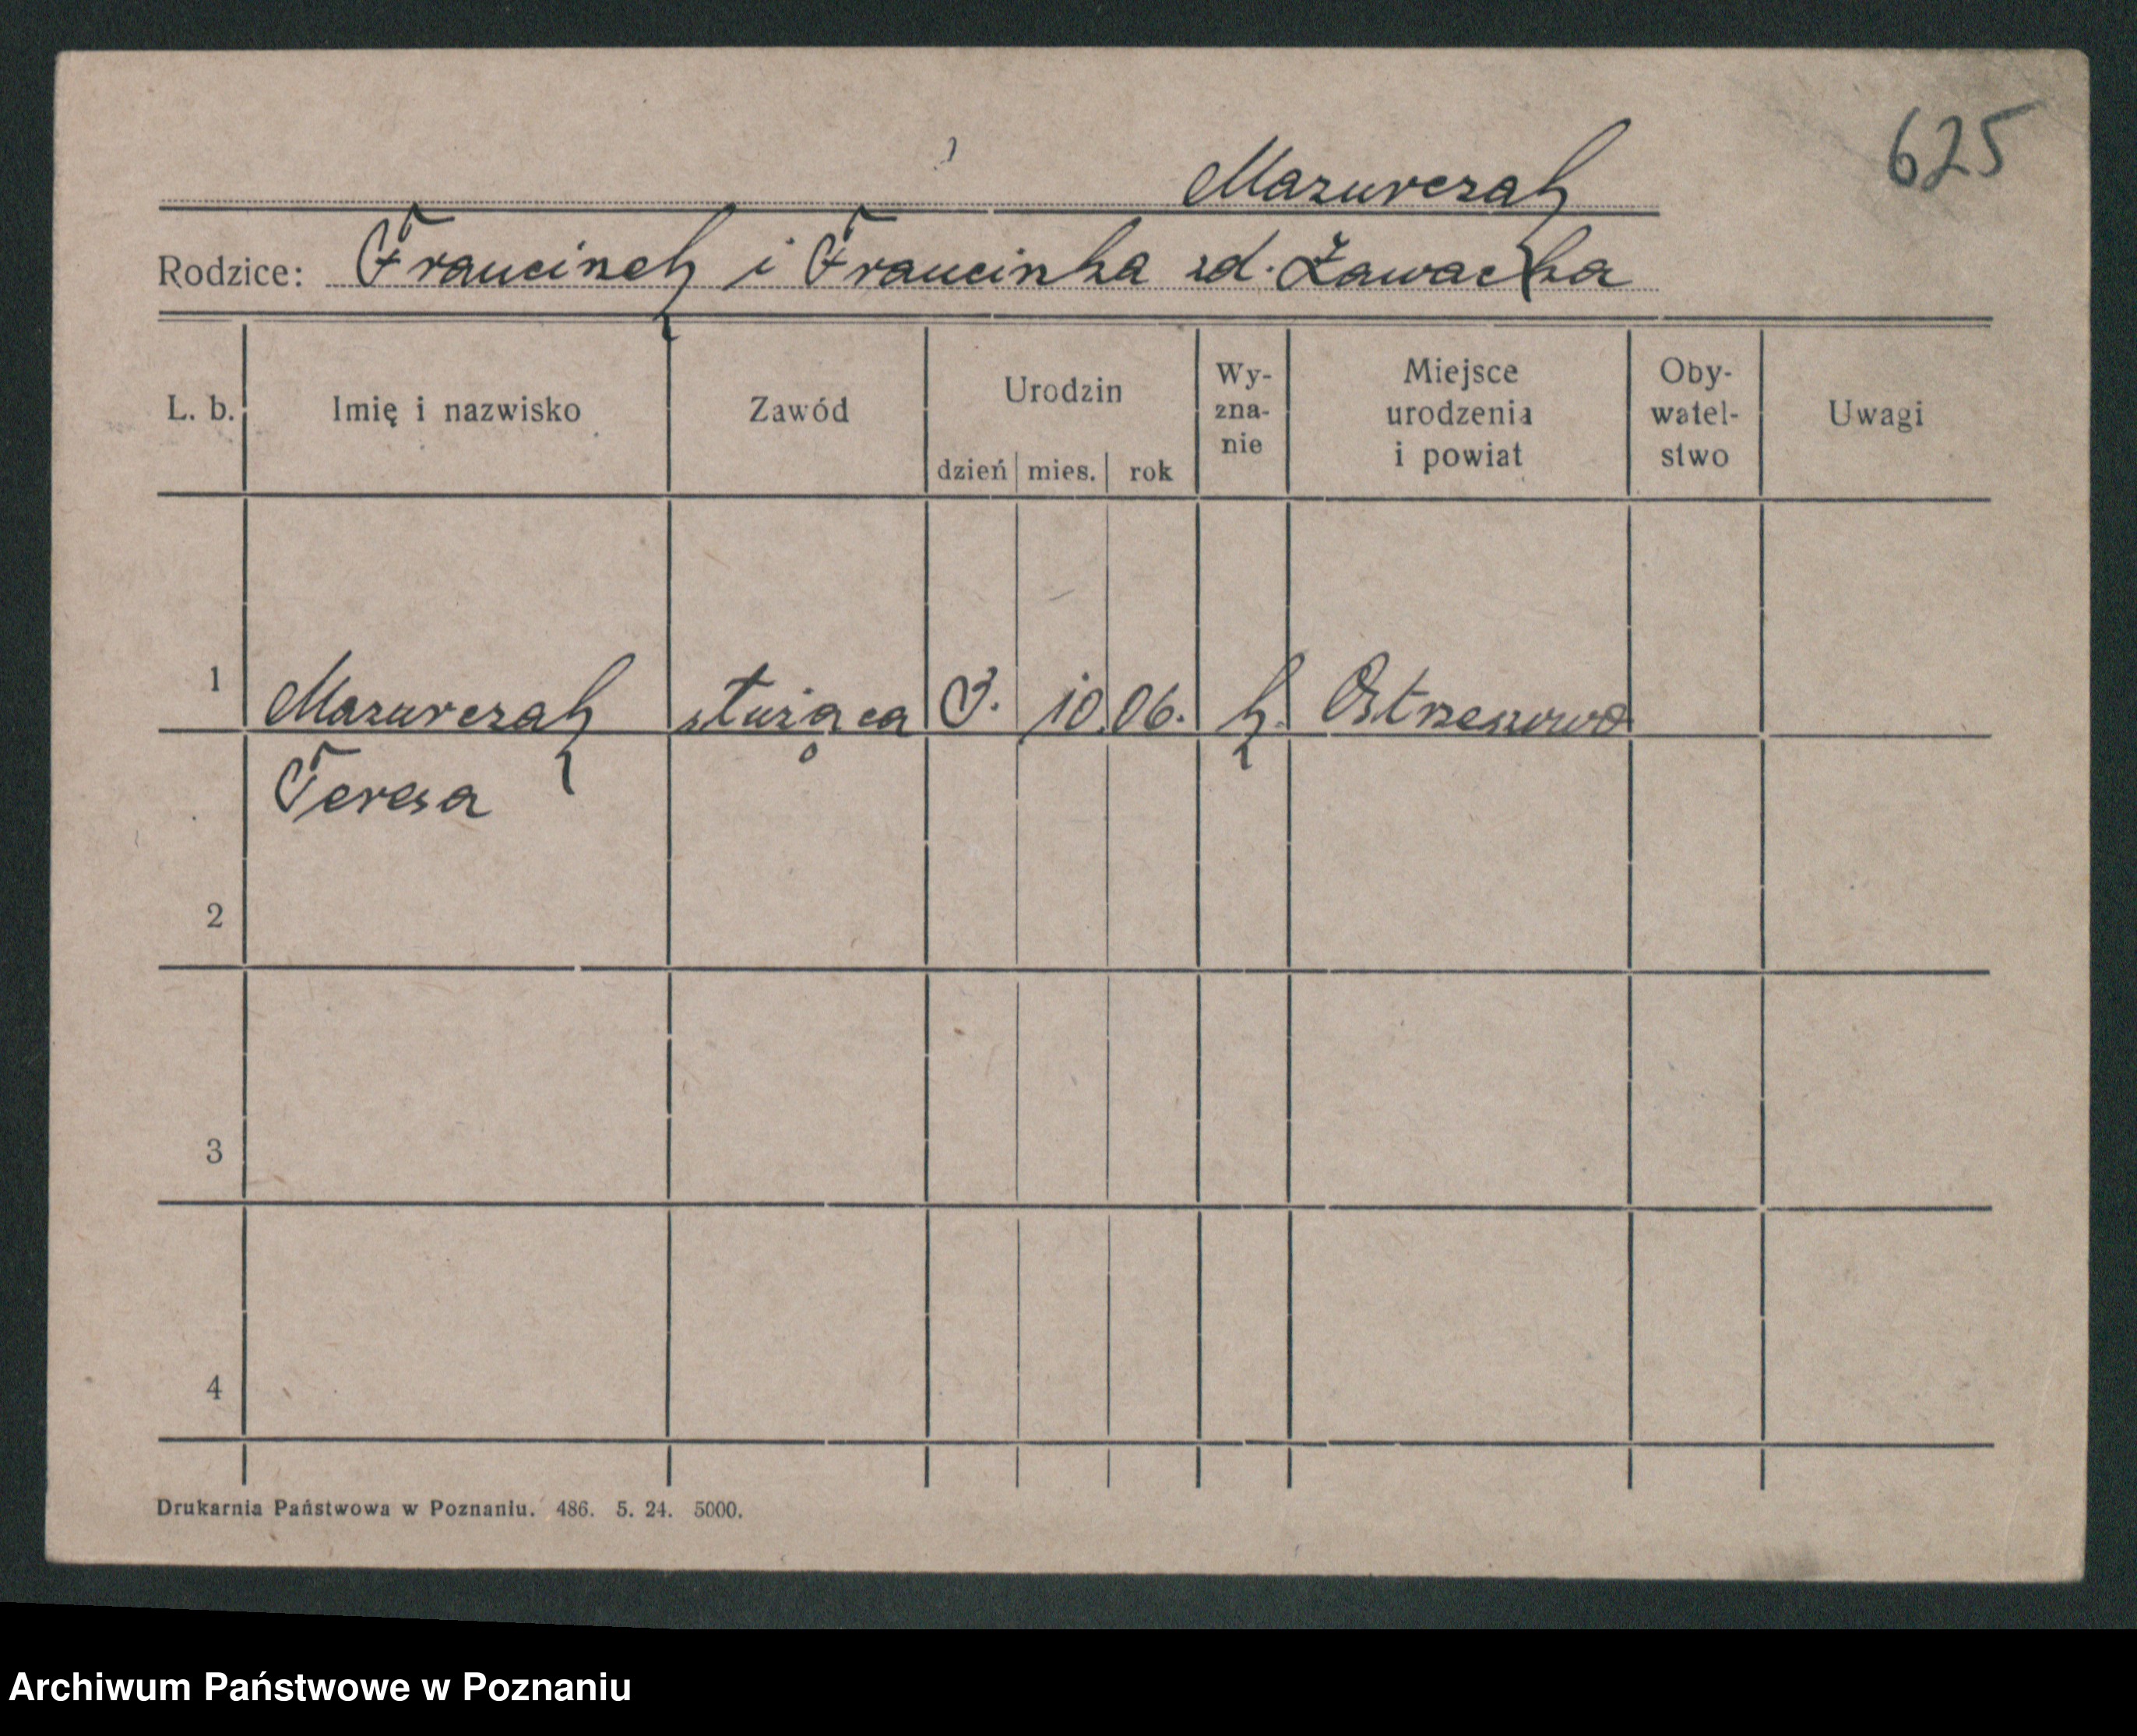 625
Mazurczak
Rodzice: Franciszek i Franciszka zd. Zawacka
L. b. Imię i nazwisko Zawód Urodzin dzień mies. rok Wy-zna-nie Miejsce urodzenia i powiat Oby-watel-stwo Uwagi
1 Mazurczak służąca 3. 10. 06. k. Ostrzeszowo
Teresa
2
3
4
Drukarnia Państwowa w Poznaniu. 486. 5. 24. 5000.
Archiwum Państwowe w Poznaniu